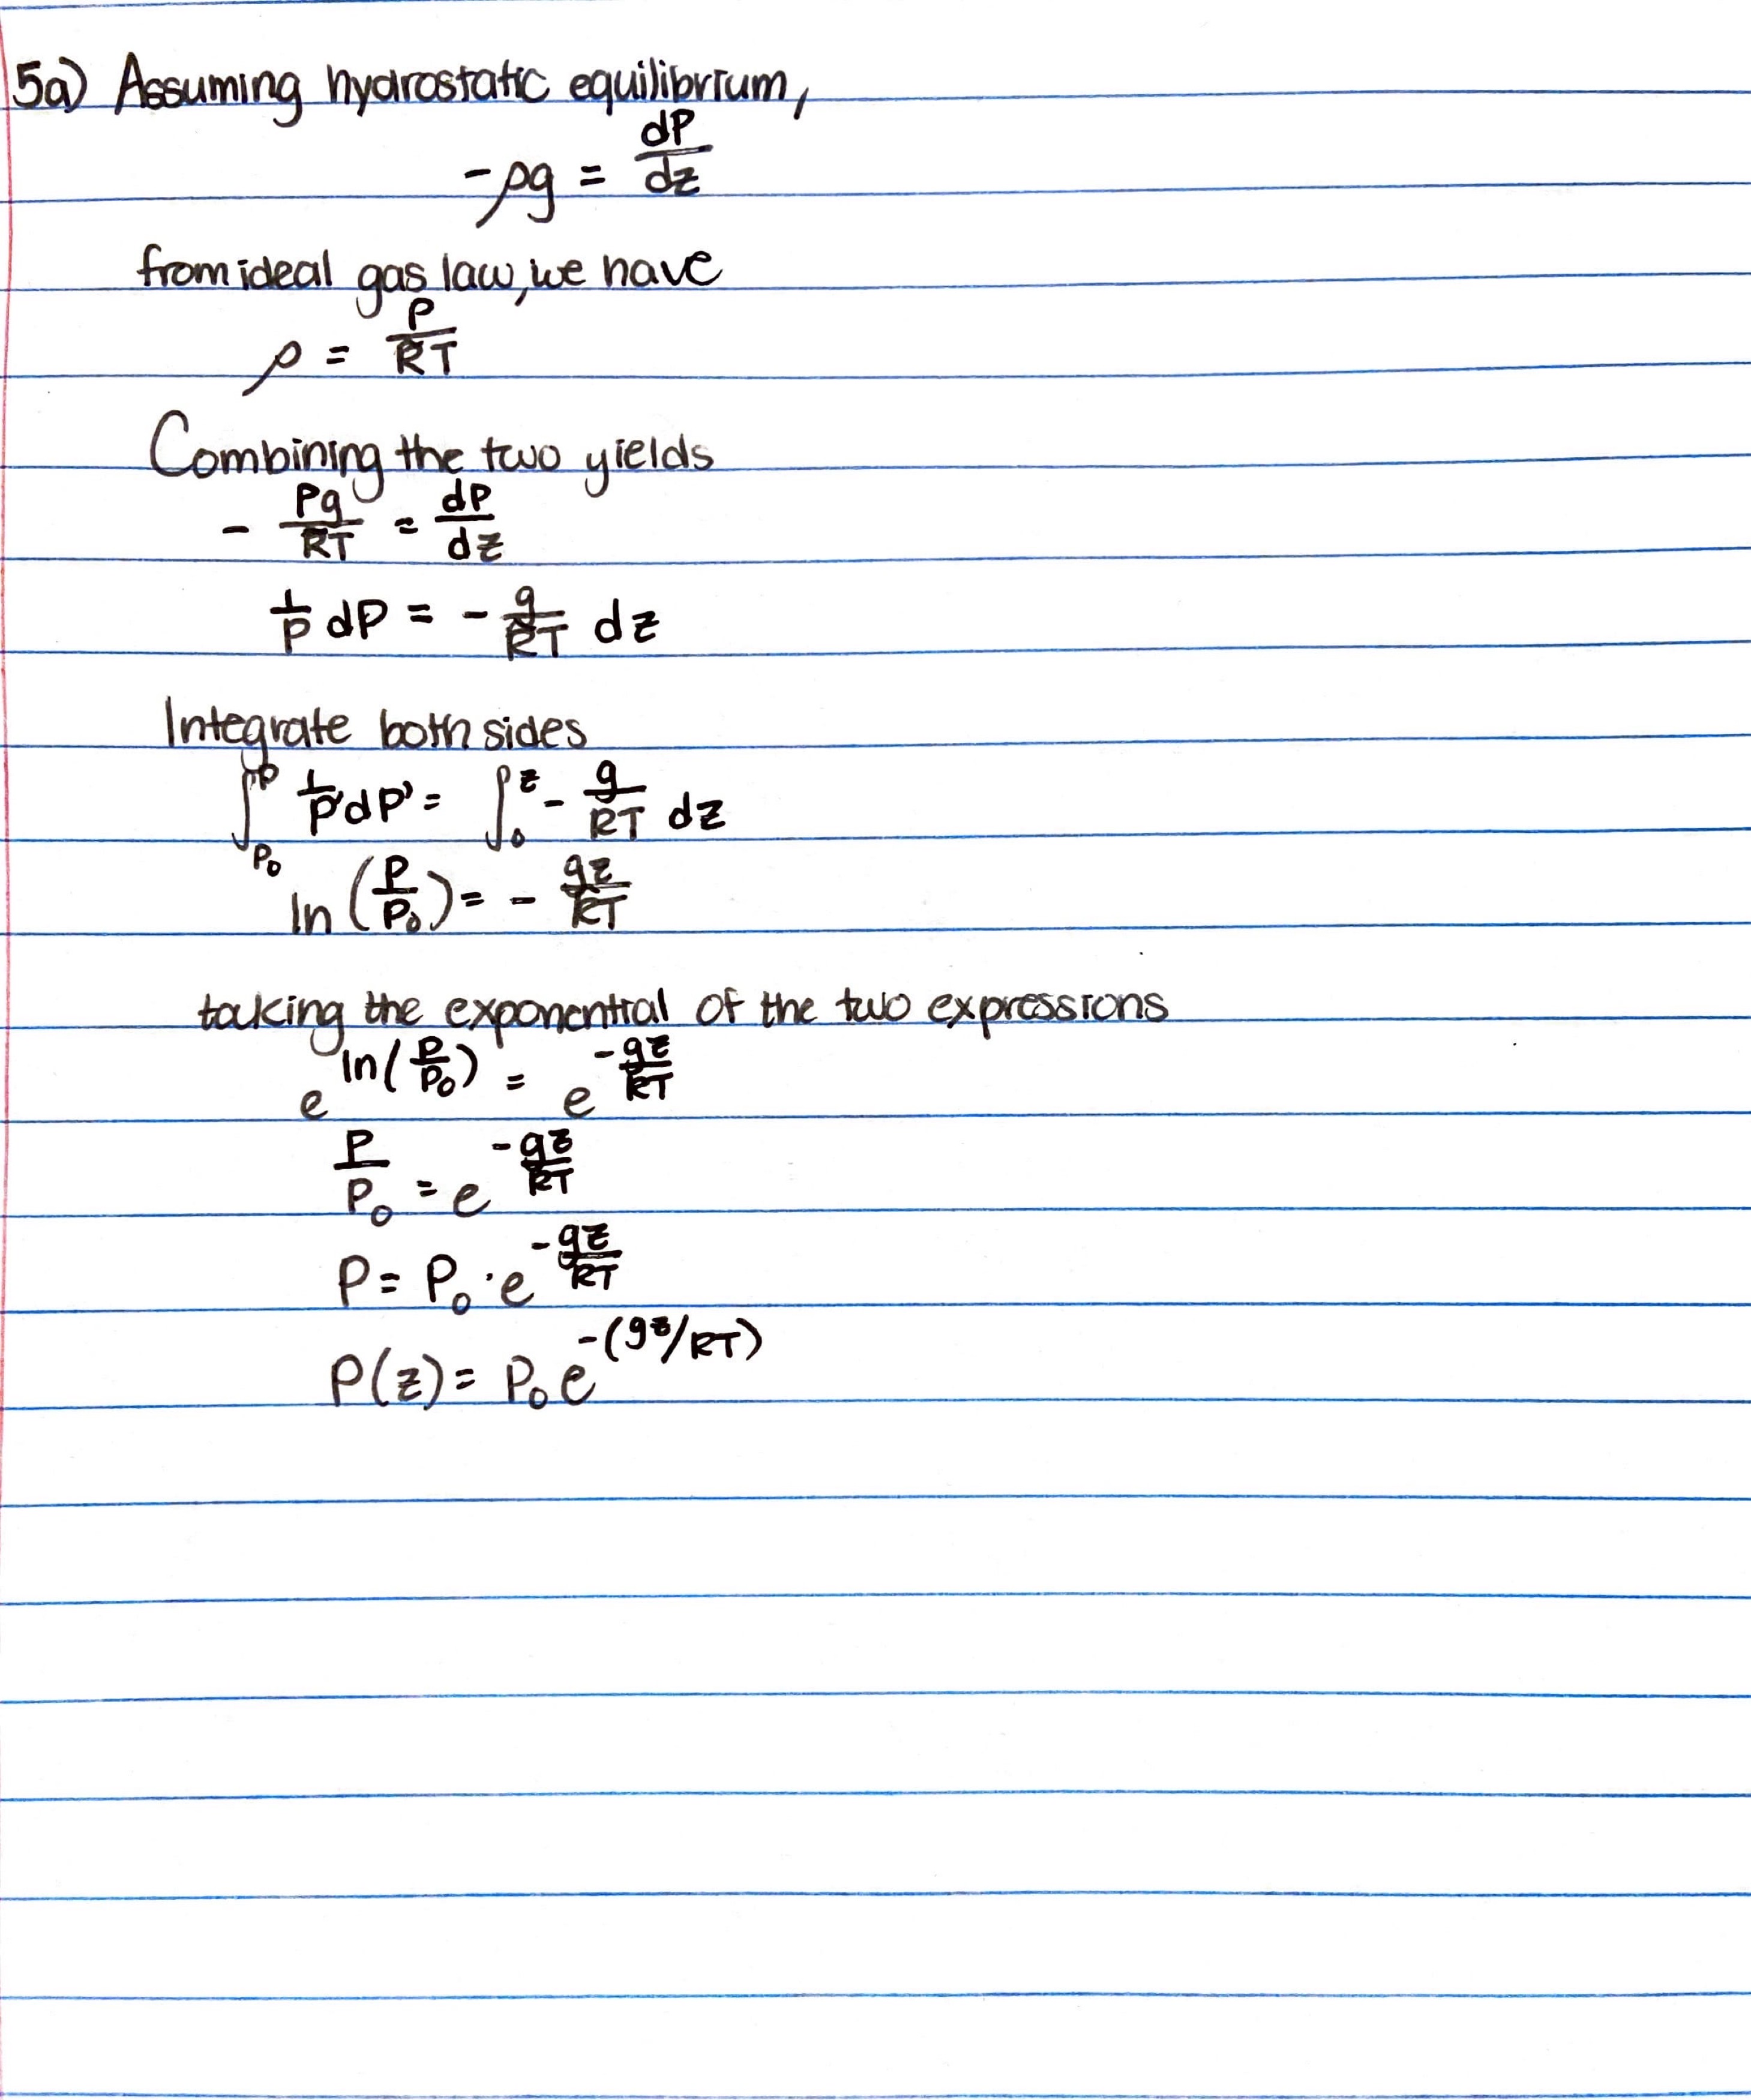 5a) Assuming hydrostatic equilibrium,
-ρg = dP/dz
from ideal gas law, we have
ρ = P/RT
Combining the two yields
- Pg/RT = dP/dz
1/P dP = - g/RT dz
Integrate both sides
∫_{P₀}^{P} 1/P' dP' = ∫_{0}^{z} - g/RT dz
ln (P/P₀) = - gz/RT
taking the exponential of the two expressions
e^{ln(P/P₀)} = e^{-gz/RT}
P/P₀ = e^{-gz/RT}
P = P₀ · e^{-gz/RT}
P(z) = P₀ e^{-(gz/RT)}